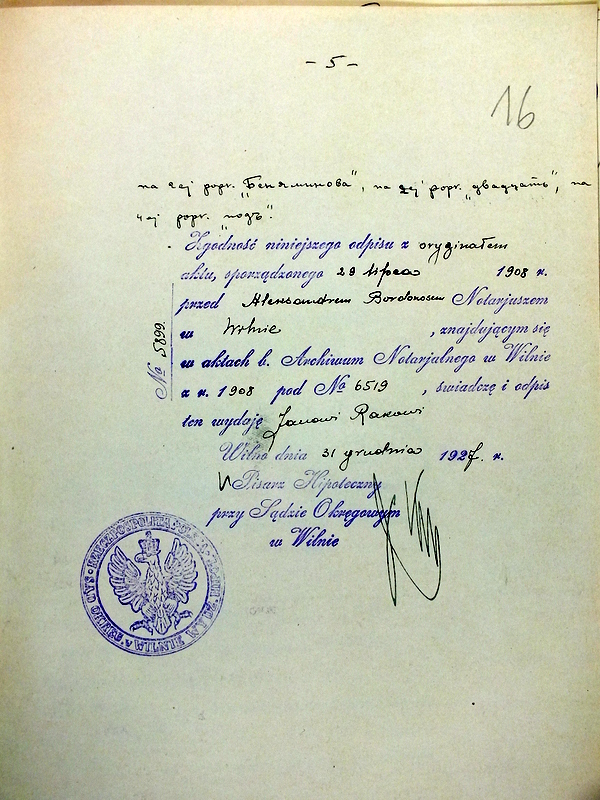 - 5 -
16
на 2ej popr. "Беняминова", na 2ej popr. "двадцать", na
4ej popr. "подъ".
Zgodność niniejszego odpisu z oryginałem
aktu, sporządzonego 29 lipca 1908 r.
przed Aleksandrem Bordonosem Notarjuszem
w Wilnie , znajdującym się
w aktach b. Archiwum Notarjalnego w Wilnie
z r. 1908 pod No 6519 , świadczę i odpis
ten wydaję Janowi Rakowi
Wilno dnia 31 grudnia 1927. r.
Pisarz Hipoteczny
przy Sądzie Okręgowym
w Wilnie
No 5899.
SĄD OKRĘGOWY W WILNIE